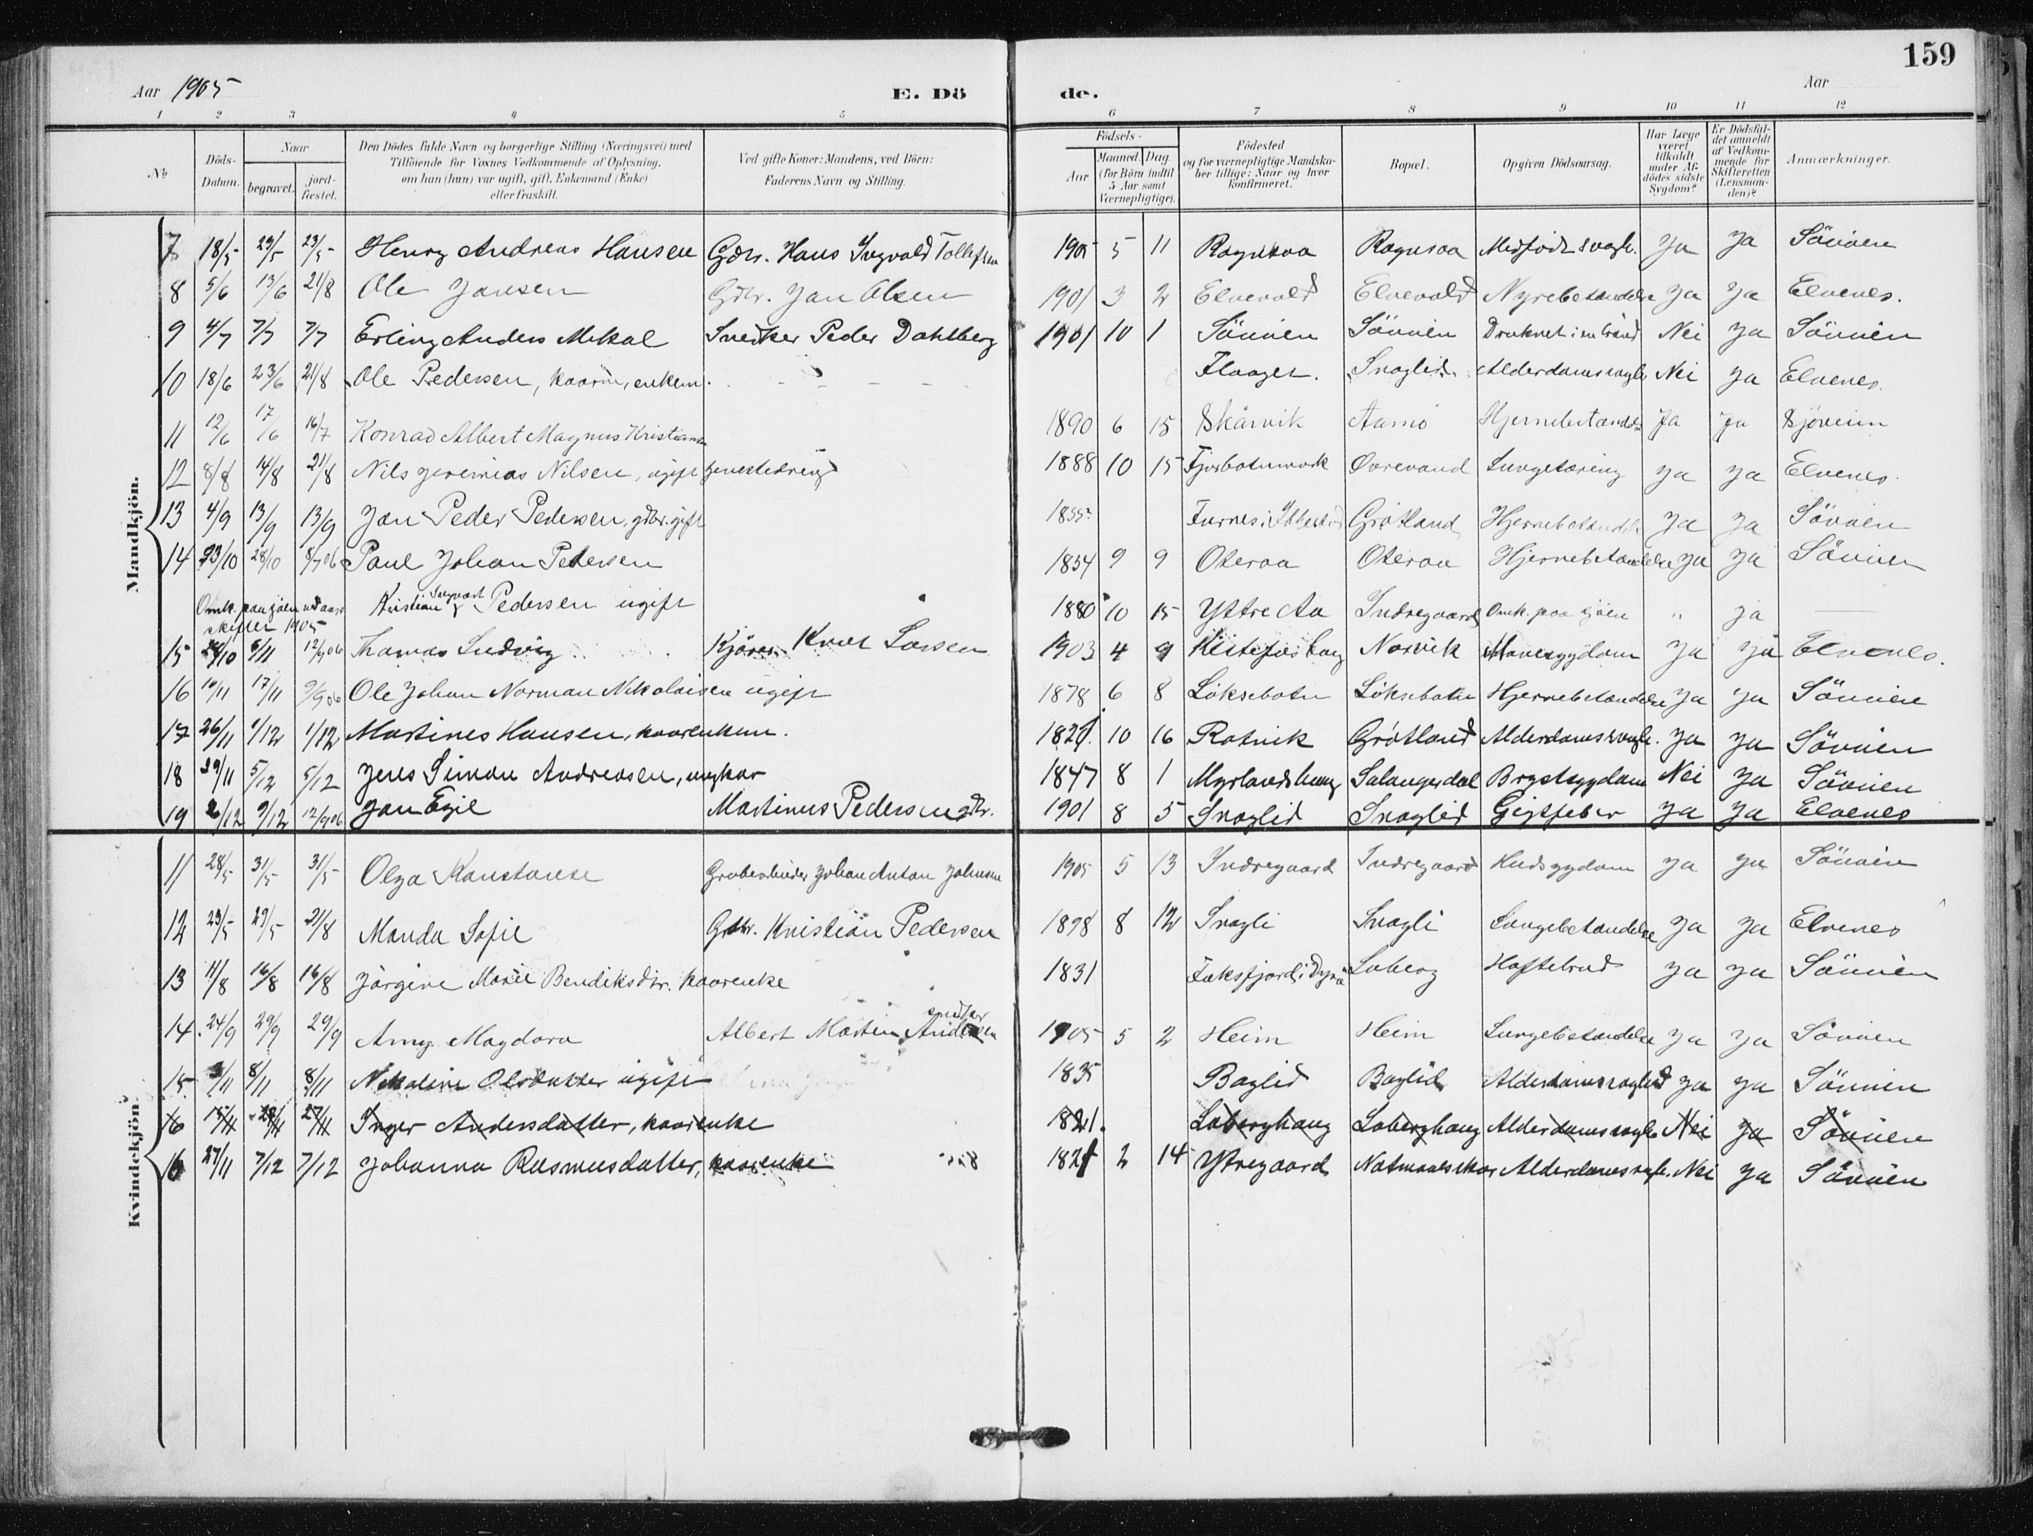 159
Aar 1905 E. Dö de. Aar
1 2 3 4 5 6 7 8 9 10 11 12
No Döds-Datum. Naar begravet. jord-fæstet. Den Dödes fulde Navn og borgerlige Stilling (Næringsvei) med Tilföiende for Voxnes Vedkommende af Oplysning, om han (hun) var ugift, gift, Enkemand (Enke) eller fraskilt. Ved gifte Koner: Mandens, ved Börn: Faderens Navn og Stilling. Födsels- Aar Maaned. Dag. (for Börn indtil 5 Aar samt Værnepligtige). Födested og for værnepligtige Mandskaber tillige: Naar og hvor konfirmeret. Bopæl. Opgiven Dödsaarsag. Har Læge været tilkaldt under Afdödes sidste Sygdom? Er Dödsfaldet anmeldt af Vedkommende for Skifteretten (Lensmanden)? Anmærkninger.
Mandkjön.
7 18/5 23/5 23/5 Henry Andreas Hansen Gdbr. Hans Ingvald Tollefsen 1905 5 11 Rognsaa Rognsaa Medfödt svagh. Ja Ja Sövien
8 5/6 13/6 21/8 Ole Jansen Gdbr. Jan Olsen 1901 3 2 Elvevold Elvevold Nyrebetændelse Ja Ja Elvenes.
9 4/7 7/7 7/7 Erling Anders Mikal Snedker Peder Dahlberg 1901 10 1 Sövien Sövien Druknet i en brönd Nei Ja Sövien
10 18/6 23/6 21/8 Ole Pedersen, kaarm, enkem. - - - - Flaaget. Snoglid. Alderdomssvagh Nei Ja Elvenes.
11 12/6 17/6 16/7 Konrad Albert Magnus Kristiansen 1890 6 15 Skårvik Aamo Hjernebetændelse Ja Ja Sjövein
12 8/8 14/8 21/8 Nils Jeremias Nilsen, ugift tjenestedreng 1888 10 15 Fjosbotnmark Övrevand Lungetæring Ja Ja Elvenes.
13 4/9 13/9 13/9 Jan Peder Pedersen, gdbr. gift 1855 Furnes i Ibbestad Grötland Hjernebetændelse Ja Ja Sövien
14 23/10 28/10 8/7 06 Paul Johan Pedersen 1854 9 9 Oteraa Oteraa Hjernebetændelse Ja Ja Sövien
Omk. paa sjöen ved aarsskiftet 1905 Kristian Sigvart Pedersen ugift 1880 10 15 Yttre Aa Indregaard Omk. paa sjöen " ja
15 /10 6/11 12/9 06 Thomas Ludvig Kjörer Knut Larsen 1903 4 9 Kistefos haug Narvik Mavesygdom Ja Ja Elvenes.
16 10/11 17/11 9/9 06 Ole Johan Norman Nikolaisen ugift 1878 6 8 Löksebotn Löksebotn Hjernebetændelse Ja Ja Sövien
17 26/11 1/12 1/12 Martines Hansen, kaarenkem. 1821. 10 16 Rotvik Grötland Alderdomssvagh. Ja Ja Sövien
18 29/11 5/12 5/12 Jens Simon Andreasen, ungkar 1847 8 1 Myrlandshaug Salangsdal Brystsygdom Nei Ja Sövien
19 2/12 9/12 12/9 06 Jan Egil Martinus Pedersen gbr. 1901 8 5 Snoglid Snoglid Gigtfeber Ja Ja Elvenes
Kvindekjön.
11 28/5 31/5 31/5 Olga Konstanse Grubearbeider Johan Anton Johnsen 1905 5 13 Indregaard Indregaard Hudsygdom Ja Ja Sövien
12 23/5 29/5 21/8 Manda Sofie Gdbr. Kristian Pedersen 1898 8 12 Snogli Snogli Lungebetændelse Ja Ja Elvenes
13 11/8 16/8 16/8 Jörgine Marie Bendiksdtr. kaarenke 1831 Faksfjord i Dyrö Laberg Hoftebrud Ja Ja Sövien
14. 24/9 29/9 29/9 Anny Magdora Albert Martin Andersen snedker 1905 5 2 Heim Heim Lungebetændelse Ja Ja Sövien
15 3/11 8/11 8/11 Nikoline Olsdatter ugift 1835 Baglid Baglid Alderdomssvaghed Ja Ja Sövien
16 Inger Andersdatter, kaarenke 1821. Laberghaug Laberghaug Alderdomssvagh Nei Ja Sövien
16 27/11 7/12 7/12 Johanna Rasmusdatter, kaarenke 1821 2 14 Ytregaard Nötmandskar Alderdomssvagh. Nei Ja Sövien